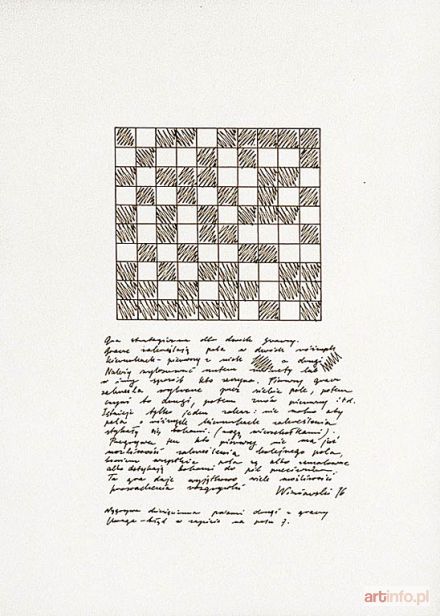 Gra strategiczna dla dwóch graczy.
Gracze zakreślają pola w dwóch różnych
kierunkach - pierwszy w a drugi
Należy wylosować monety lub
w inny sposób kto zaczyna. Pierwszy gracz
zakreśla wybrane przez siebie pole, potem
czyni to drugi, potem znów pierwszy itd.
Istnieje tylko jeden zakaz: nie mogą aby
pola o różnych kierunkach zakreślenia
stykały się bokami. (mogą wierzchołkami).
Przegrywa ten kto pierwszy nie ma już
możliwości zakreślenia kolejnego pola,
bowiem wszystkie pola są albo zamalowane
albo dotykają bokami do pól przeciwnika.
Ta gra daje wyjątkowo wiele możliwości
prowadzenia rozgrywki Winiarski 76
Wygrywa polami drugi z graczy
Uwaga - błąd w zapisie na polu 7.
artinfo.pl